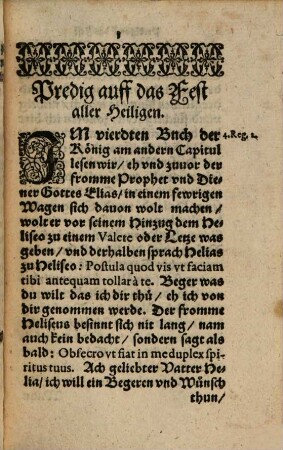 Predig auff das Fest
aller Heiligen.
IM vierdten Buch der 4. Reg. 2.
König am andern Capitul
lesen wir / eh vnd zuuor der
fromme Prophet vnd Die-
ner Gottes Elias / in einem fewrigen
Wagen sich dauon wolt machen /
wolt er vor seinem Hinzug dem He-
liseo zu einem Valete oder Letze was
geben / vnd derhalben sprach Helias
zu Heliseo: Postula quod vis vt faciam
tibi antequam tollar à te. Beger was
du wilt das ich dir thů / eh ich von
dir genommen werde. Der fromme
Heliseus besinnt sich nit lang / nam
auch kein bedacht / sondern sagt als
bald: Obsecro vt fiat in me duplex spi-
ritus tuus. Ach geliebter Vatter He-
lia / ich will ein Begeren vnd Wünsch
thun /